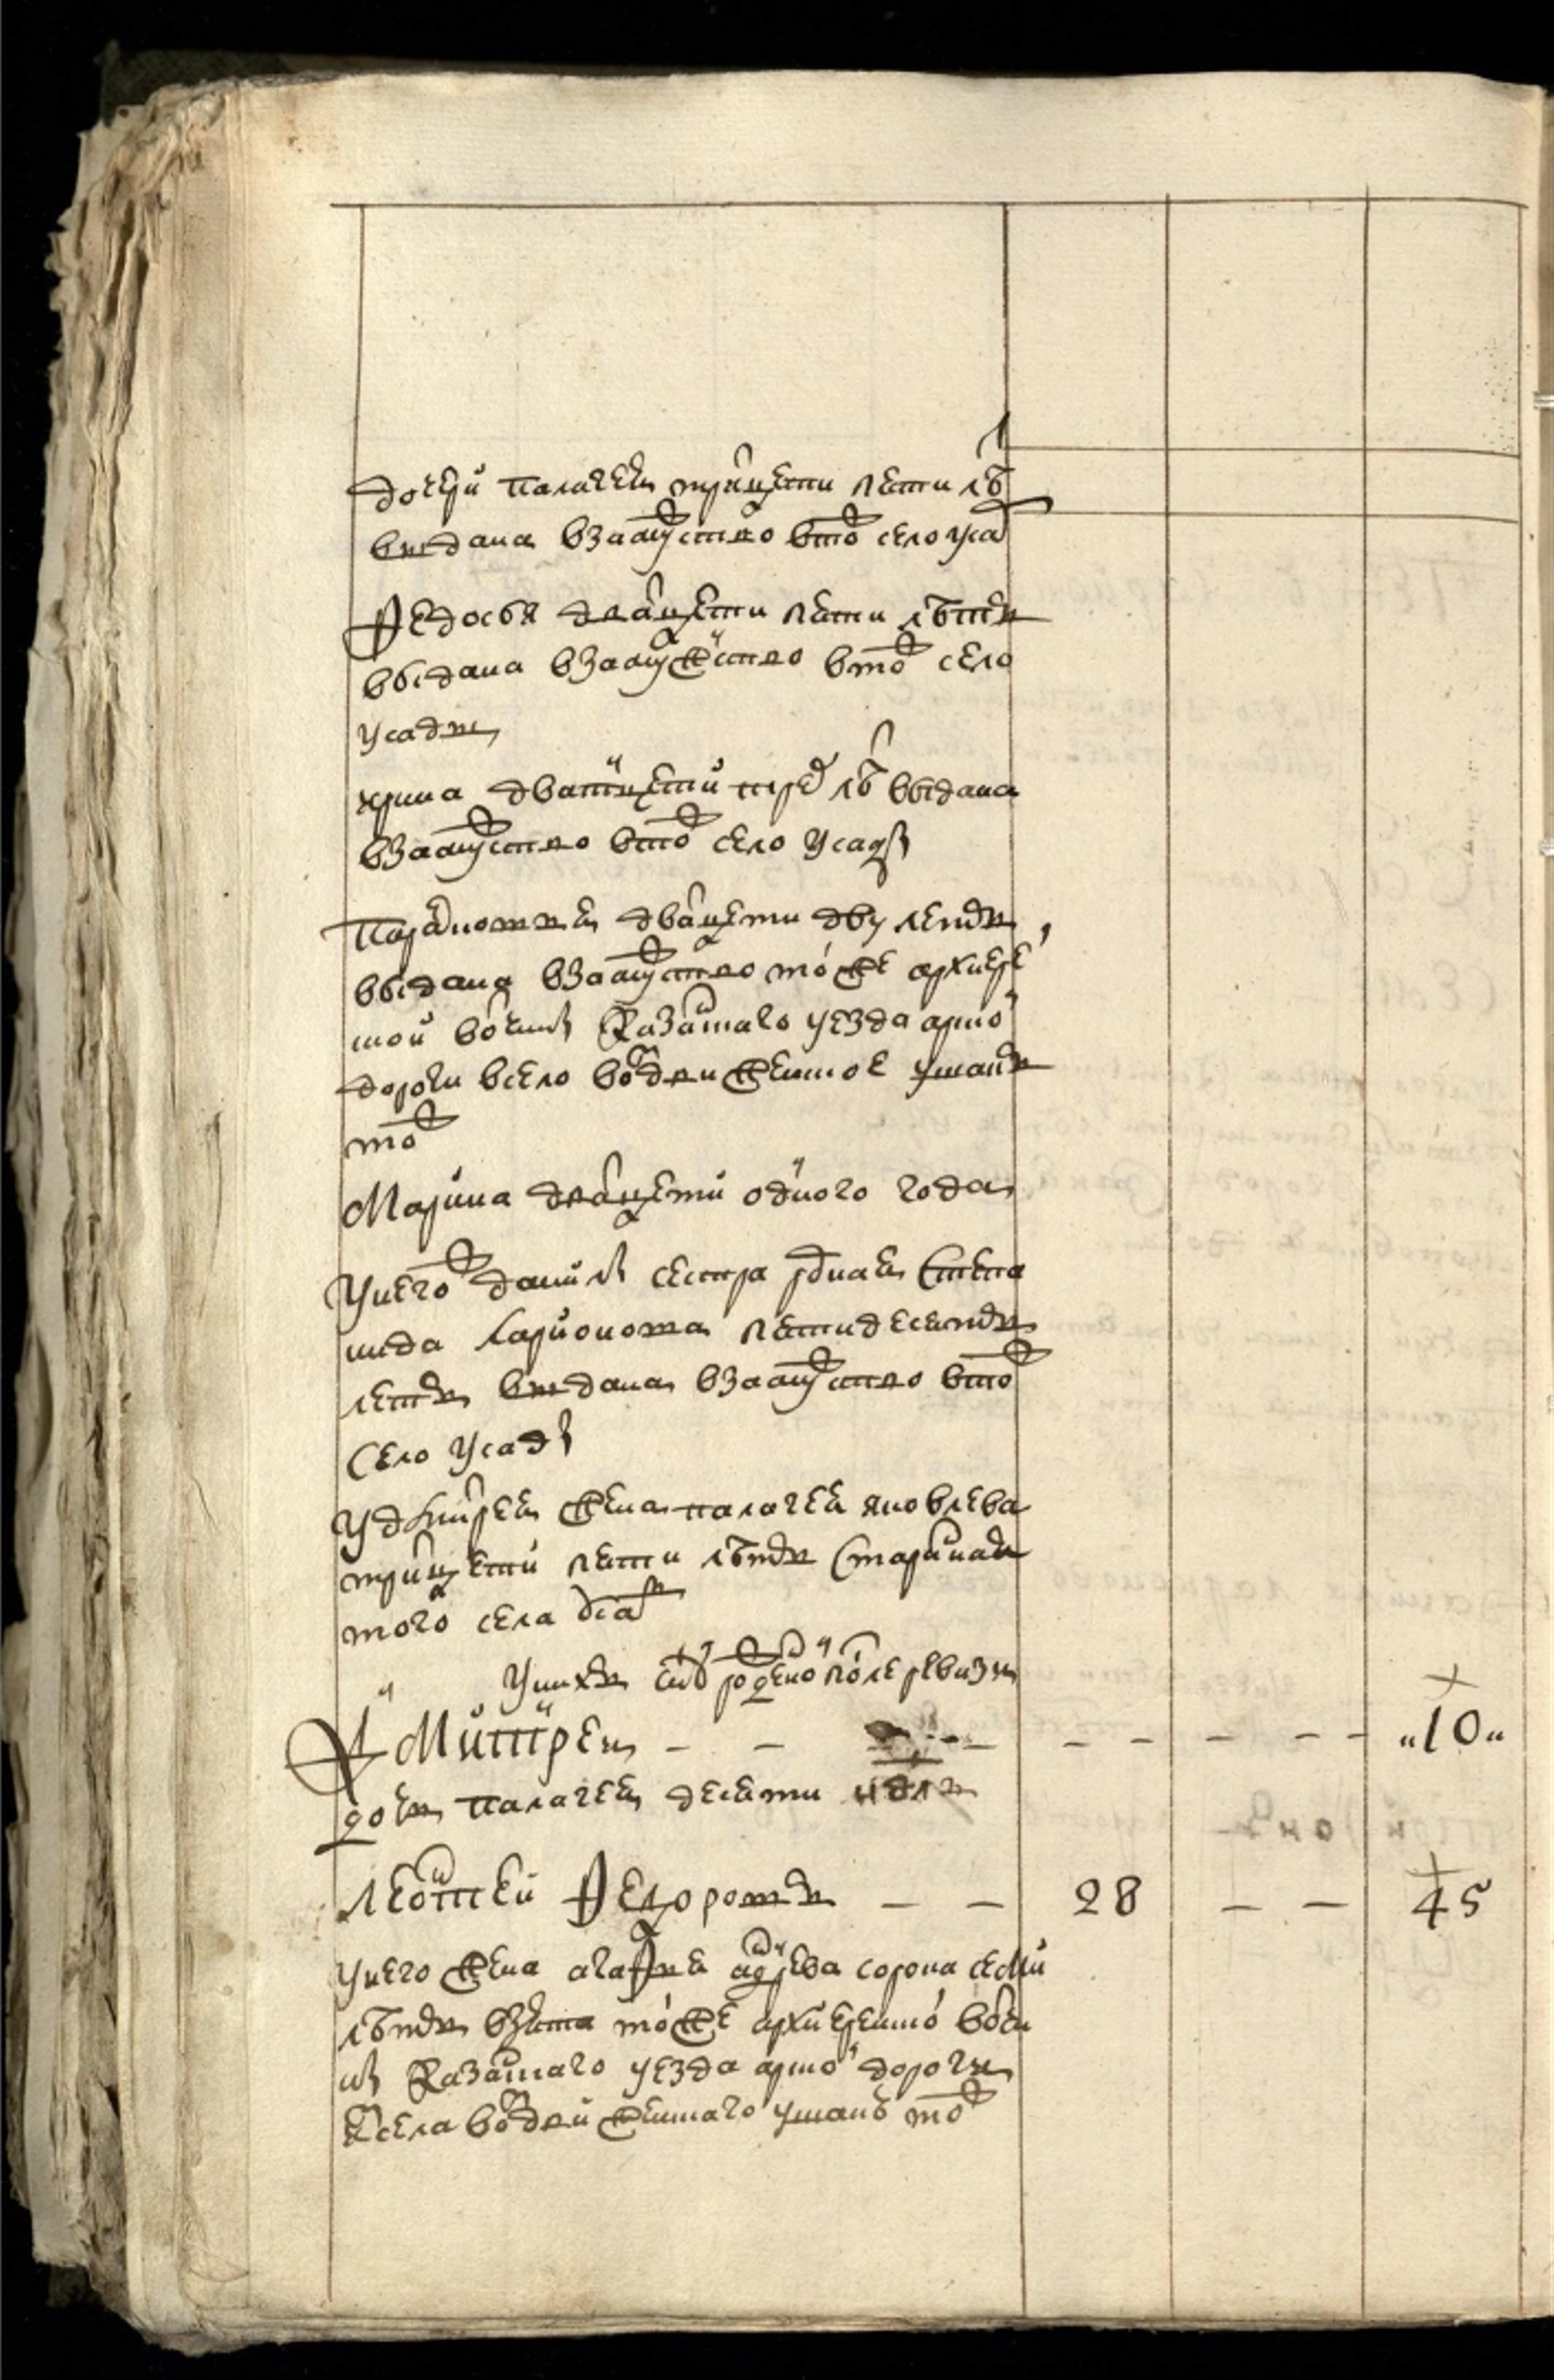 дочери палагея трицети пети летъ
выдана взамуство в то ж село усад
Федосья двацети пети летъ
выдана взамужество в то ж село
усады
ирина дватцети трех летъ выдана
взамуство в то ж село усады
Парасковья двацети дву летъ
выдана взамуство той же архиерей
ской вотчины казанского уезда арской
дороги в село воздвиженское
то ж
Марина двацети одного года
У него ж данилы сестра родная Степа
нида Ларионова пятидесятъ
летъ выдана взамуство в то ж
Село Усады
У дмитрея жена палагея яковлева
трицети пети летъ Старинная
того села
У нихъ сынъ рожденой после ревизии
Митрей – – – – – – – „10„
дочь палагея десети недель
Леонтей Федоровъ – – 28 – – 45
У него жена агафья андреева сорока семи
летъ взята той же архиерейской вотчи
ны казанского уезда арской дороги
села воздвиженского то ж